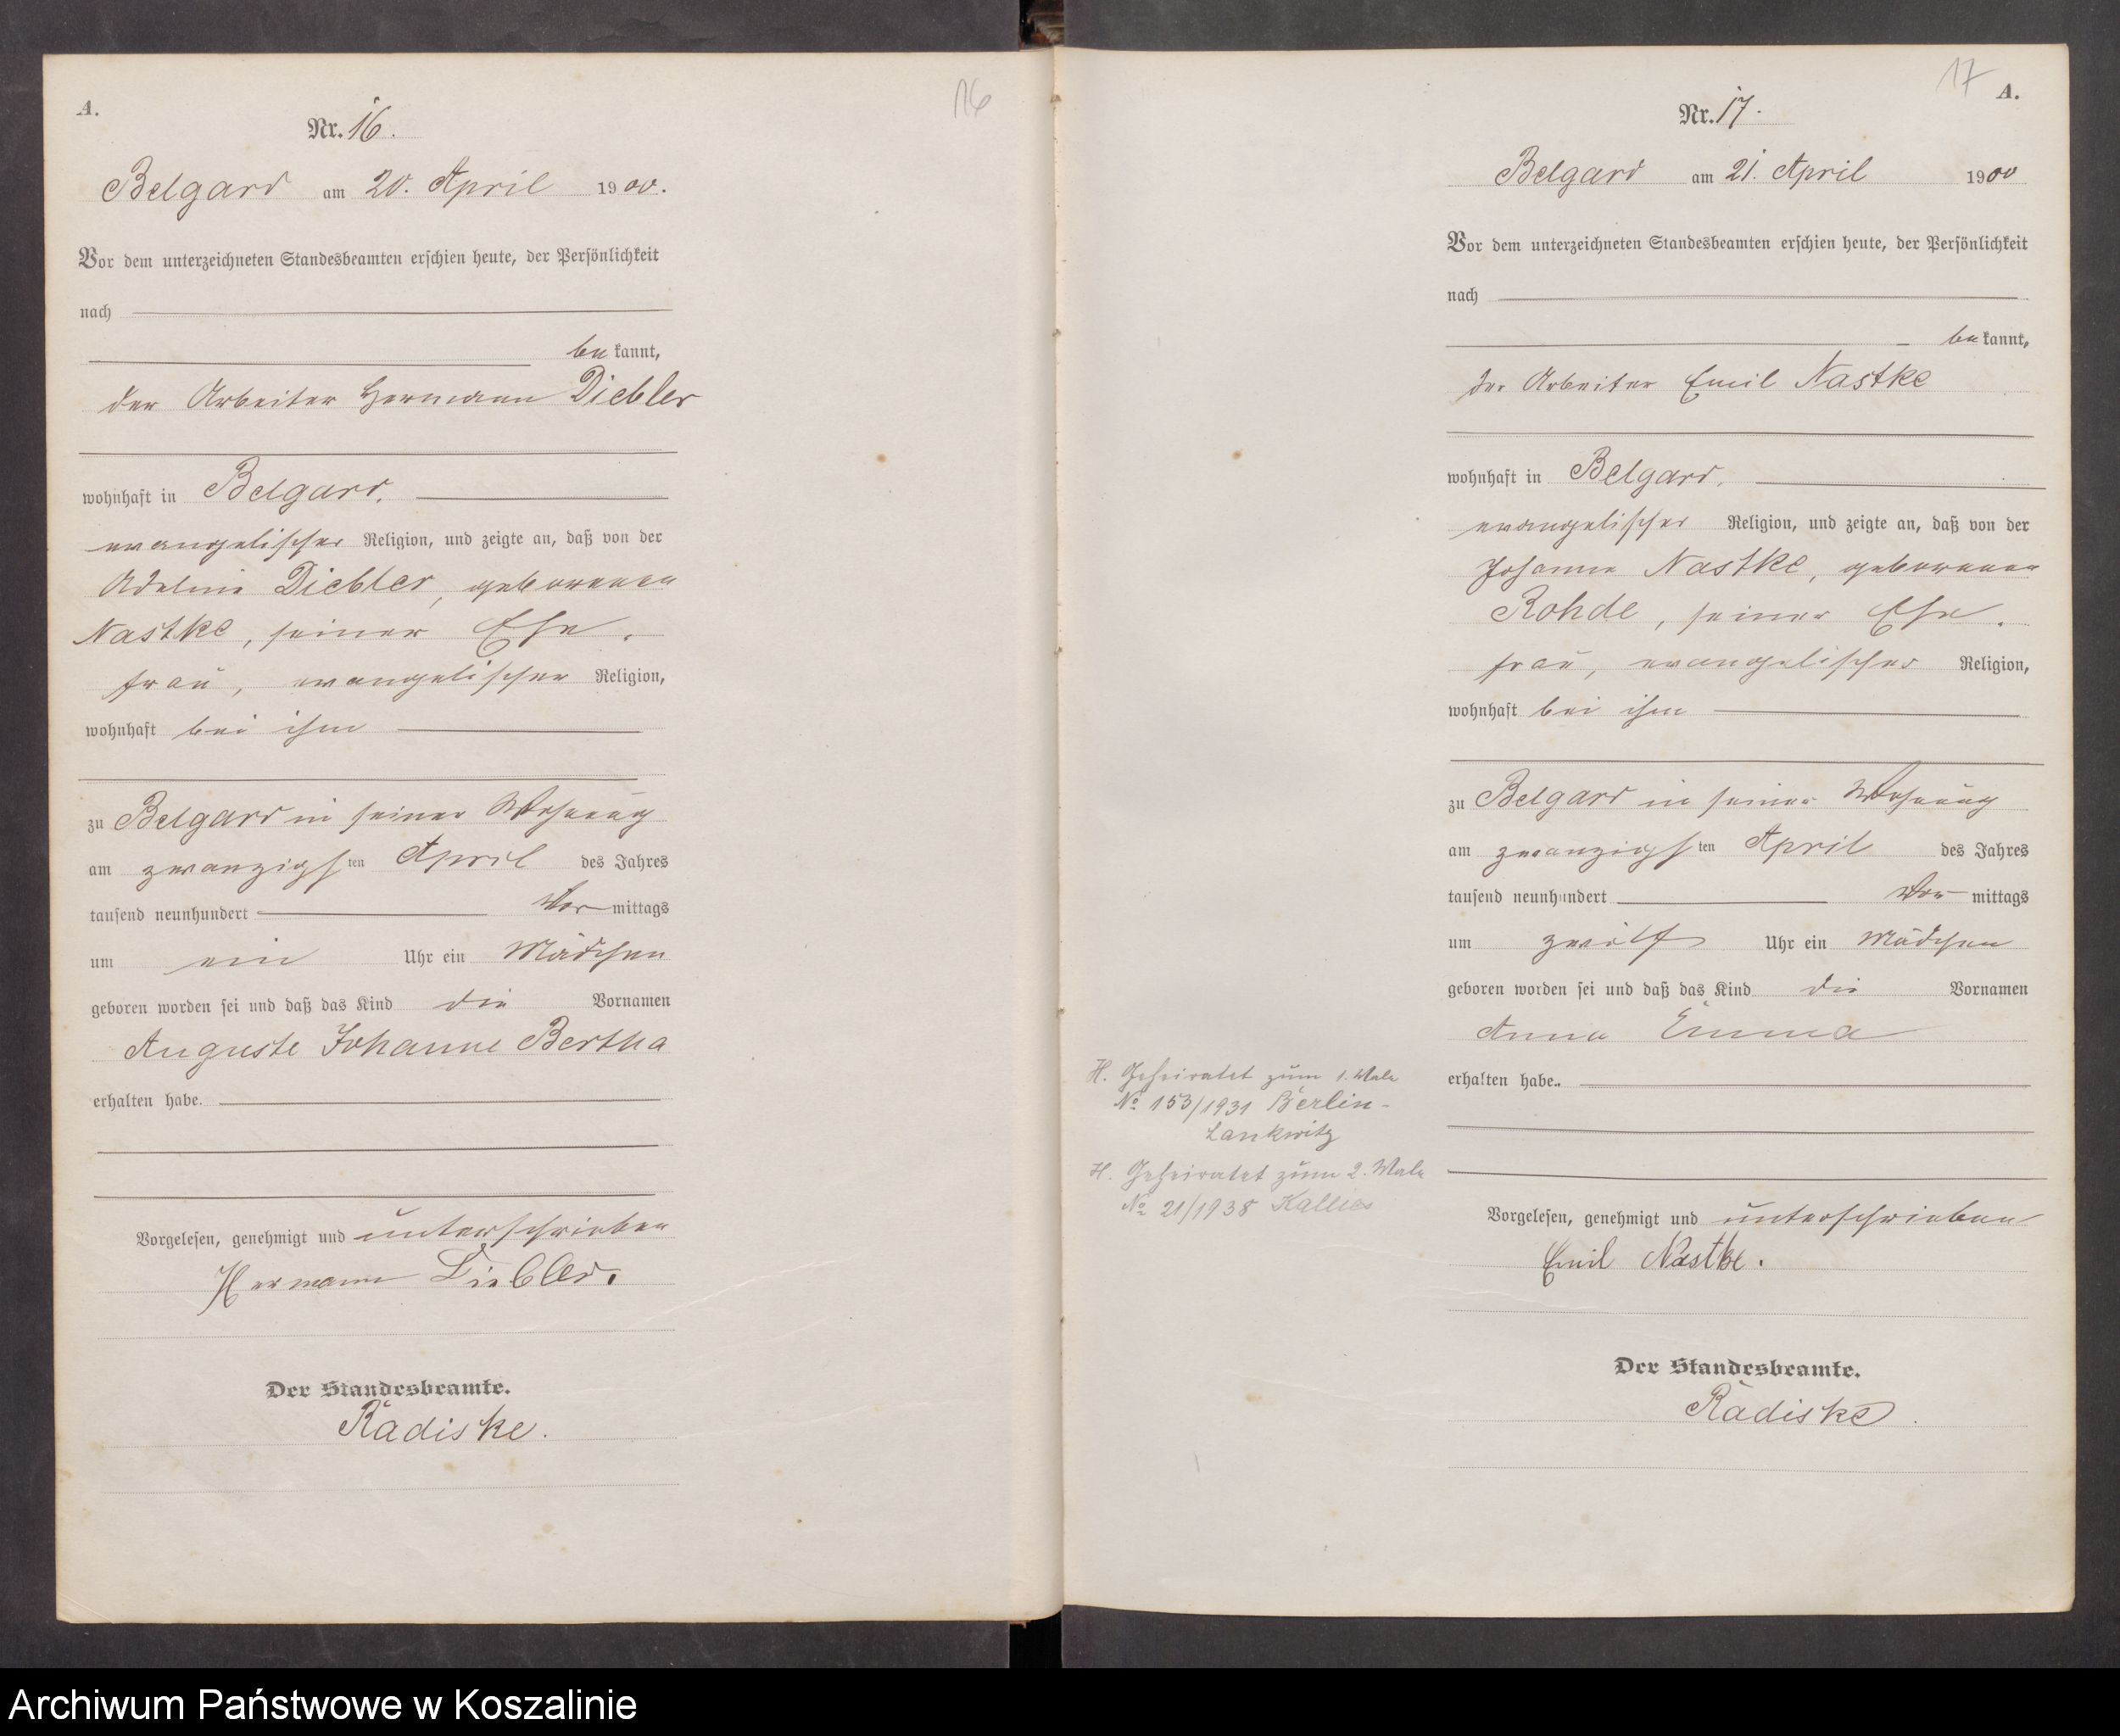 A.
16
Nr. 16.
Belgard am 20. April 1900.
Vor dem unterzeichneten Standesbeamten erschien heute, der Persönlichkeit
nach
bekannt,
der Arbeiter Hermann Diebler
wohnhaft in Belgard.
evangelischer Religion, und zeigte an, daß von der
Adeline Diebler, geborenen
Nastke, seiner Ehe-
frau, evangelischer Religion,
wohnhaft bei ihm
zu Belgard in seiner Wohnung
am zwanzigsten April des Jahres
tausend neunhundert Vormittags
um ein Uhr ein Mädchen
geboren worden sei und daß das Kind die Vornamen
Auguste Johanne Bertha
erhalten habe.
Vorgelesen, genehmigt und unterschrieben
Hermann Diebler.
Der Standesbeamte.
Radiske.
17
A.
Nr. 17.
Belgard am 21. April 1900
Vor dem unterzeichneten Standesbeamten erschien heute, der Persönlichkeit
nach
bekannt,
der Arbeiter Emil Nastke
wohnhaft in Belgard.
evangelischer Religion, und zeigte an, daß von der
Johanne Nastke, geborenen
Rohde, seiner Ehe-
frau, evangelischer Religion,
wohnhaft bei ihm
zu Belgard in seiner Wohnung
am zwanzigsten April des Jahres
tausend neunhundert Vormittags
um zwölf Uhr ein Mädchen
geboren worden sei und daß das Kind die Vornamen
Anna Emma
erhalten habe.
H. Geheiratet zum 1. Male
No 153/1931 Berlin-
Lankwitz
H. Geheiratet zum 2. Male
No 21/1938 Kallies
Vorgelesen, genehmigt und unterschrieben
Emil Nastke.
Der Standesbeamte.
Radiske.
Archiwum Państwowe w Koszalinie